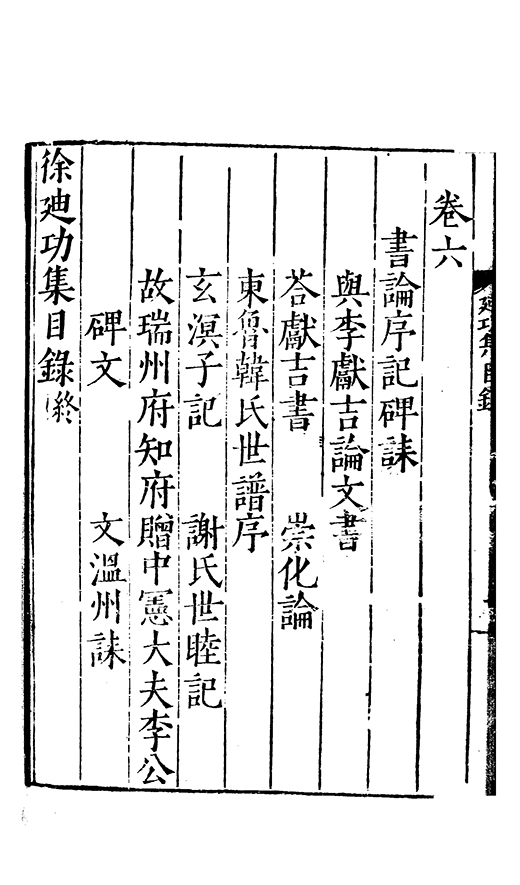 卷六
書論序記碑誄
與李獻吉論文書
荅獻吉書 崇化論
東魯韓氏世譜序
玄溟子記 謝氏世睦記
故瑞州府知府贈中憲大夫李公
碑文 文溫州誄
徐廸功集目錄終
廸功集目錄